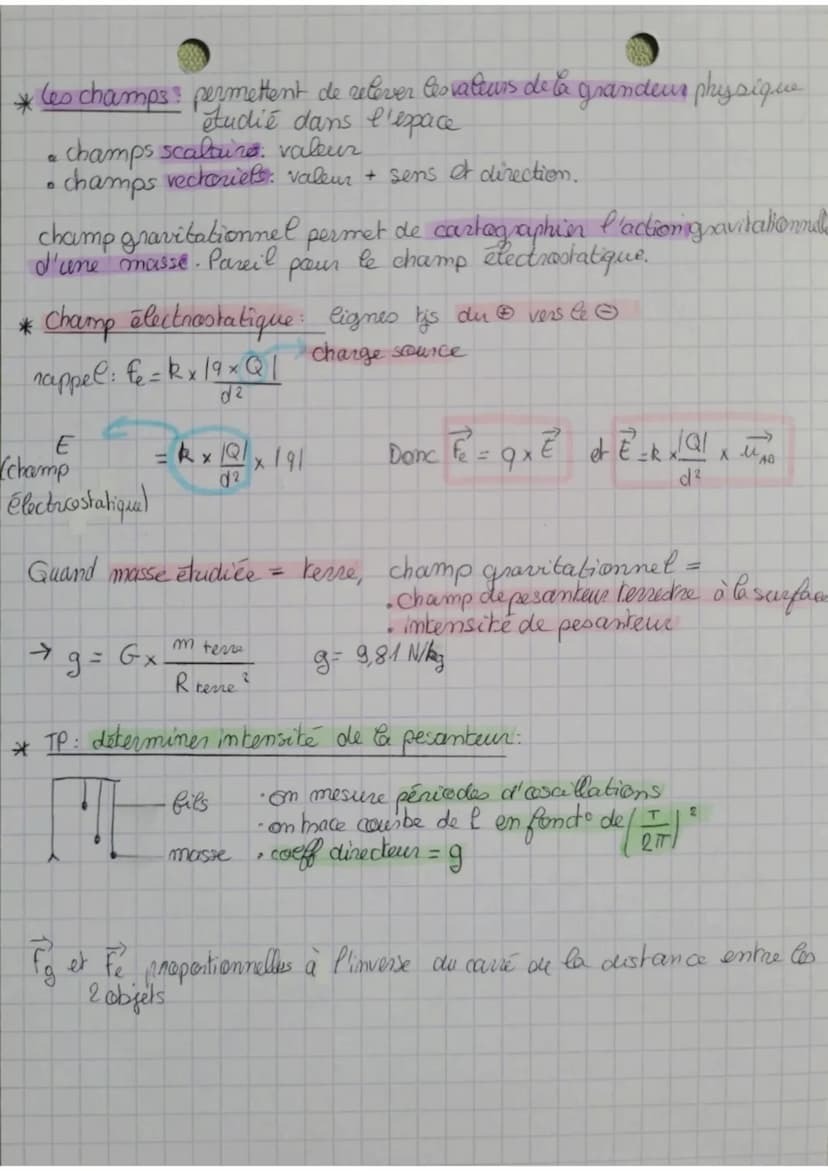 * Les champs : permettent de relever les valeurs de la grandeur physique
étudié dans l'espace
• champs scalaire : valeur
• champs vectoriels : valeur + sens et direction.
champ gravitationnel permet de cartographier l'action gravitationnelle
d'une masse. Pareil pour le champ électrostatique.
* Champ électrostatique : lignes tjs du ⊕ vers le ⊖
charge source
rappel : Fe = k × |q × Q| / d²
E = k × |Q| / d² × |q| Donc Fe = q × E et E = k × |Q| / d² × u
(champ
électrostatique)
Quand masse étudiée = terre, champ gravitationnel =
• champ de pesanteur terrestre à la surface
• intensité de pesanteur
→ g = G × m terre / R terre² g = 9,81 N/kg
* TP : déterminer intensité de la pesanteur :
fils • on mesure périodes d'oscillations
• on trace courbe de l en fonct° de (T / 2π)²
masse • coeff directeur = g
Fg et Fe proportionnelles à l'inverse du carré de la distance entre les
2 objets